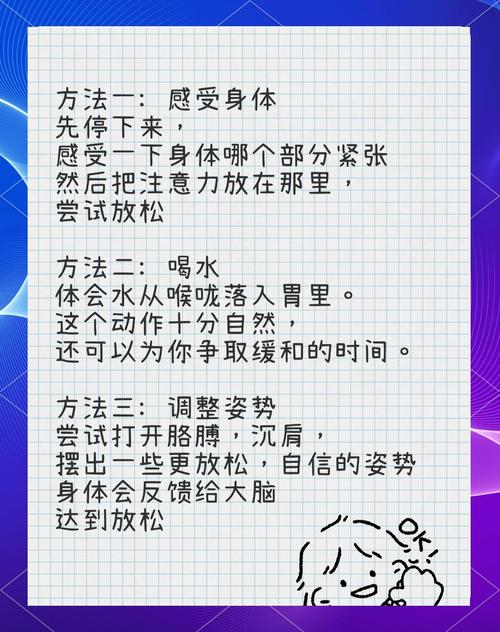 方法一： 感受身体
先停下来，
感受一下身体哪个部分紧张
然后把注意力放在那里，
尝试放松
方法二： 喝水
体会水从喉咙落入胃里。
这个动作十分自然，
还可以为你争取缓和的时间。
方法三： 调整姿势
尝试打开胳膊，沉肩，
摆出一些更放松，自信的姿势
身体会反馈给大脑
达到放松
OK!